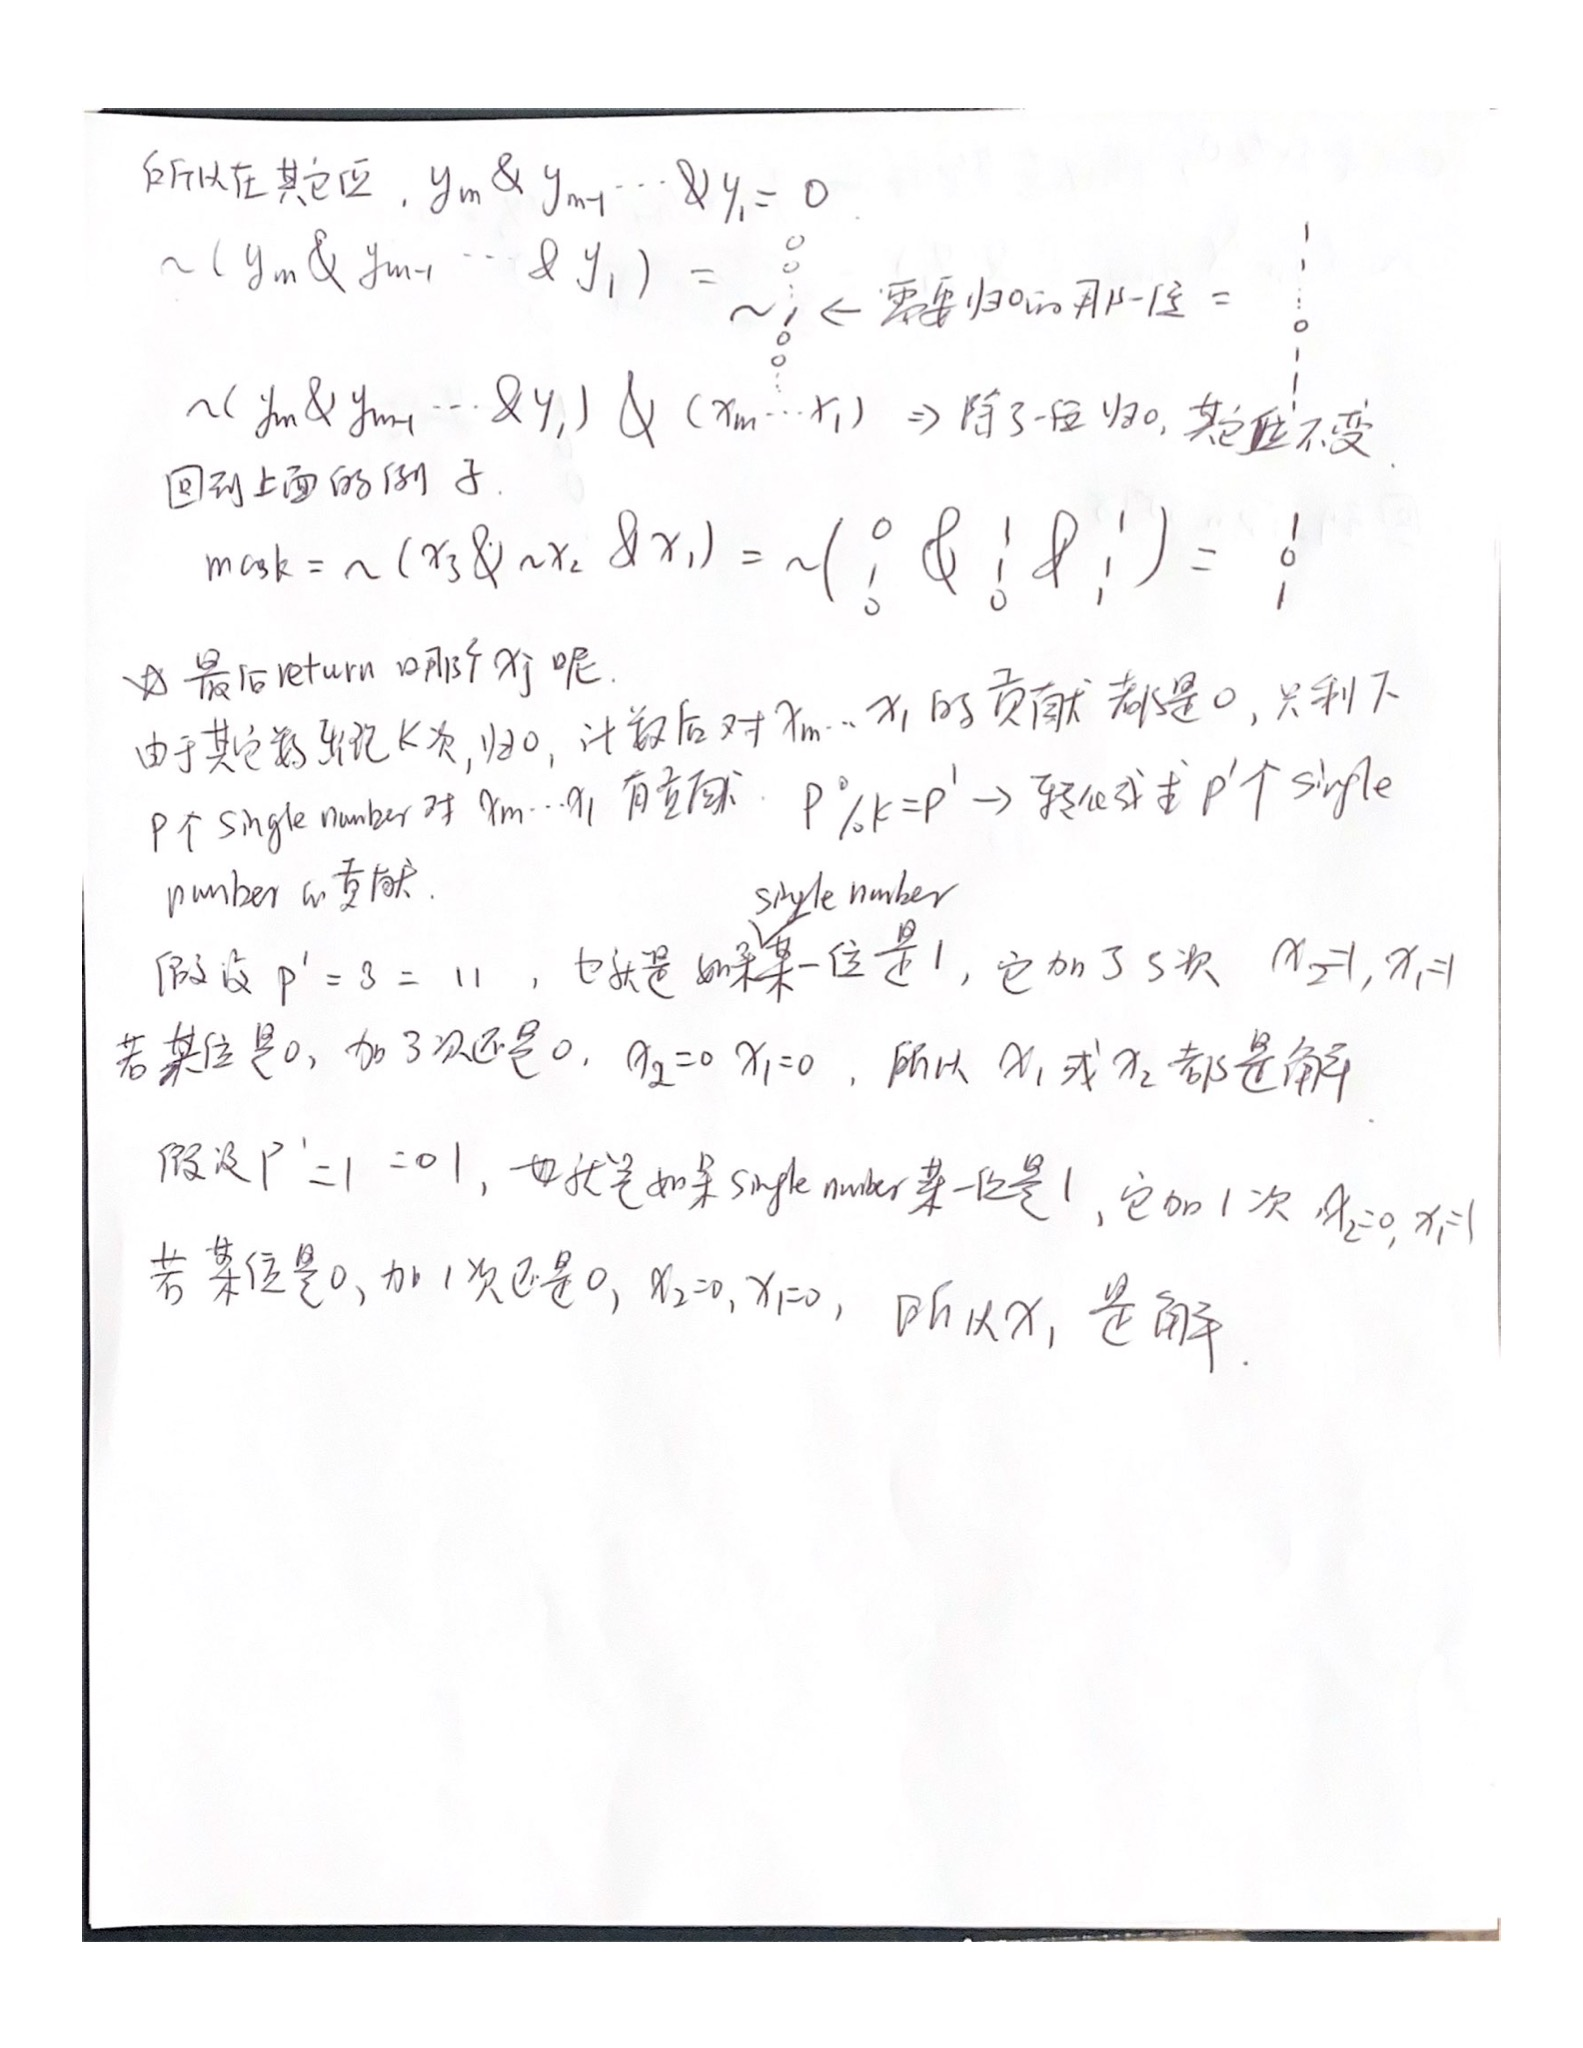 所以在其它位, ym & ym-1 ... & y1 = 0
~(ym & ym-1 ... & y1) = ~ 0 0 ⋮ 1 0 0 ⋮ ← 需要归0的那一位 = 1 1 ⋮ 0 1 1 ⋮
~(ym & ym-1 ... & y1) & (xm ... x1) ⇒ 除了一位归0, 其它位不变.
回到上面的例子.
mask = ~(x3 & ~x2 & x1) = ~( 0 1 0 & 1 1 0 & 1 1 1 ) = 1 0 1
☆ 最后return 的那个 xj 呢.
由于其它数出现K次, 归0, 计数后对 xm ... x1 的贡献都是0, 只剩下
P个 single number 对 xm ... x1 有贡献. P % k = p' → 转化成求 p'个 single
number 的贡献.
single number
假设 p' = 3 = 11, 也就是如果某一位是1, 它加了3次 x2=1, x1=1
若某位是0, 加3次还是0. x2=0 x1=0, 所以 x1 或 x2 都是解.
假设 P' = 1 = 01, 也就是如果 single number 某一位是1, 它加1次, x2=0, x1=1
若某位是0, 加1次还是0, x2=0, x1=0, 所以 x1 是解.